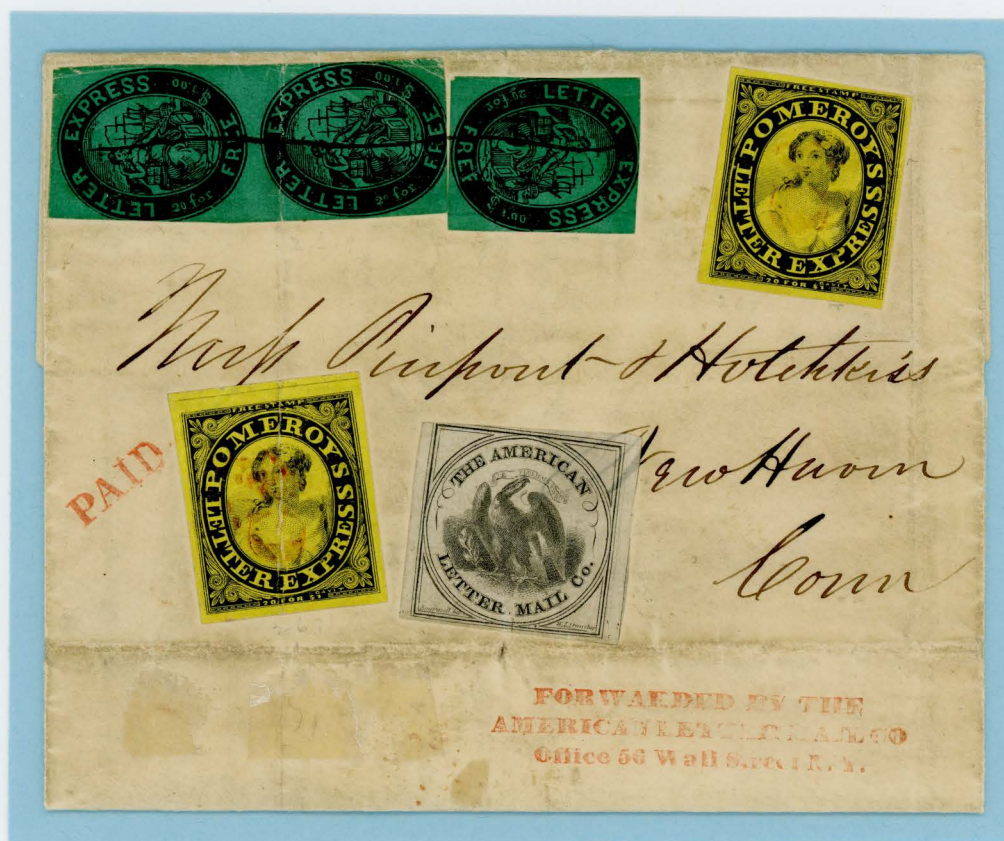 LETTER EXPRESS FREE 20 for $1.00
LETTER EXPRESS FREE 20 for $1.00
LETTER EXPRESS FREE 20 for $1.00
FREE STAMP
POMEROY'S LETTER EXPRESS
20 FOR $1
Mess Pierpont & Hotchkiss
New Haven
Conn
PAID
FREE STAMP
POMEROY'S LETTER EXPRESS
20 FOR $1
THE AMERICAN
LETTER MAIL Co.
FORWARDED BY THE
AMERICAN LETTER MAIL CO
Office 56 Wall Street N. Y.